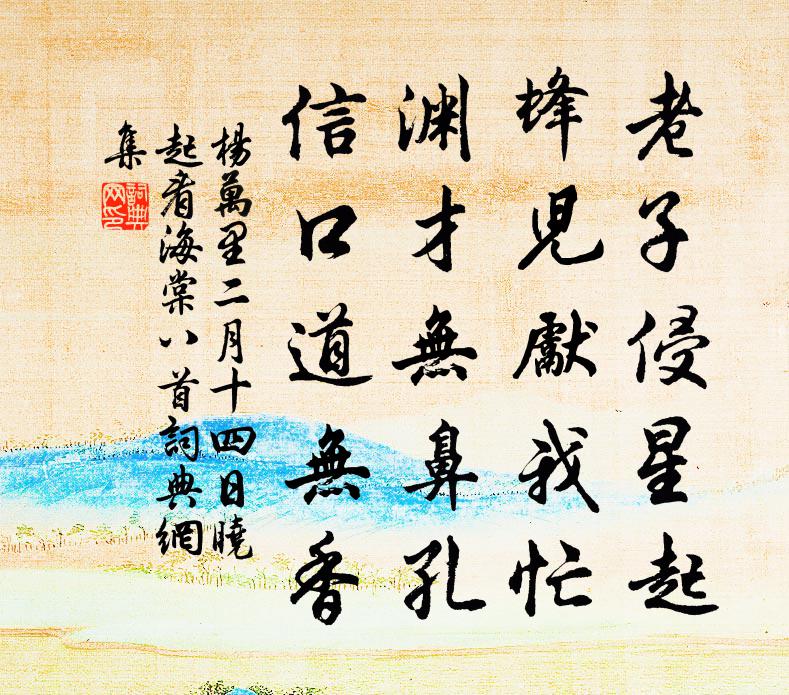 老子侵星起
蜂兒獻我忙
渊才無鼻孔
信口道無香
楊萬里二月十四日曉
起看海棠八首詞典網
集
詞典
网印